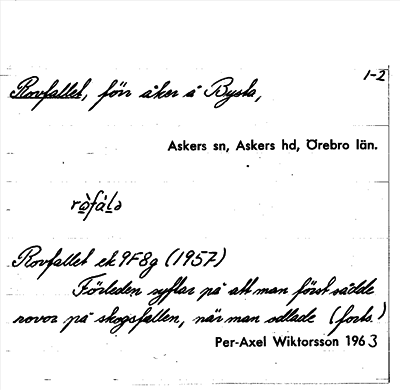 1-2
Rovfallet, förr åker å Bysta,
Askers sn, Askers hd, Örebro län.
rò̱fáḻə
Rovfallet ek 9F8g (1957)
Förleden syftar på att man först sådde
rovor på skogsfallen, när man odlade (forts.)
Per-Axel Wiktorsson 1963